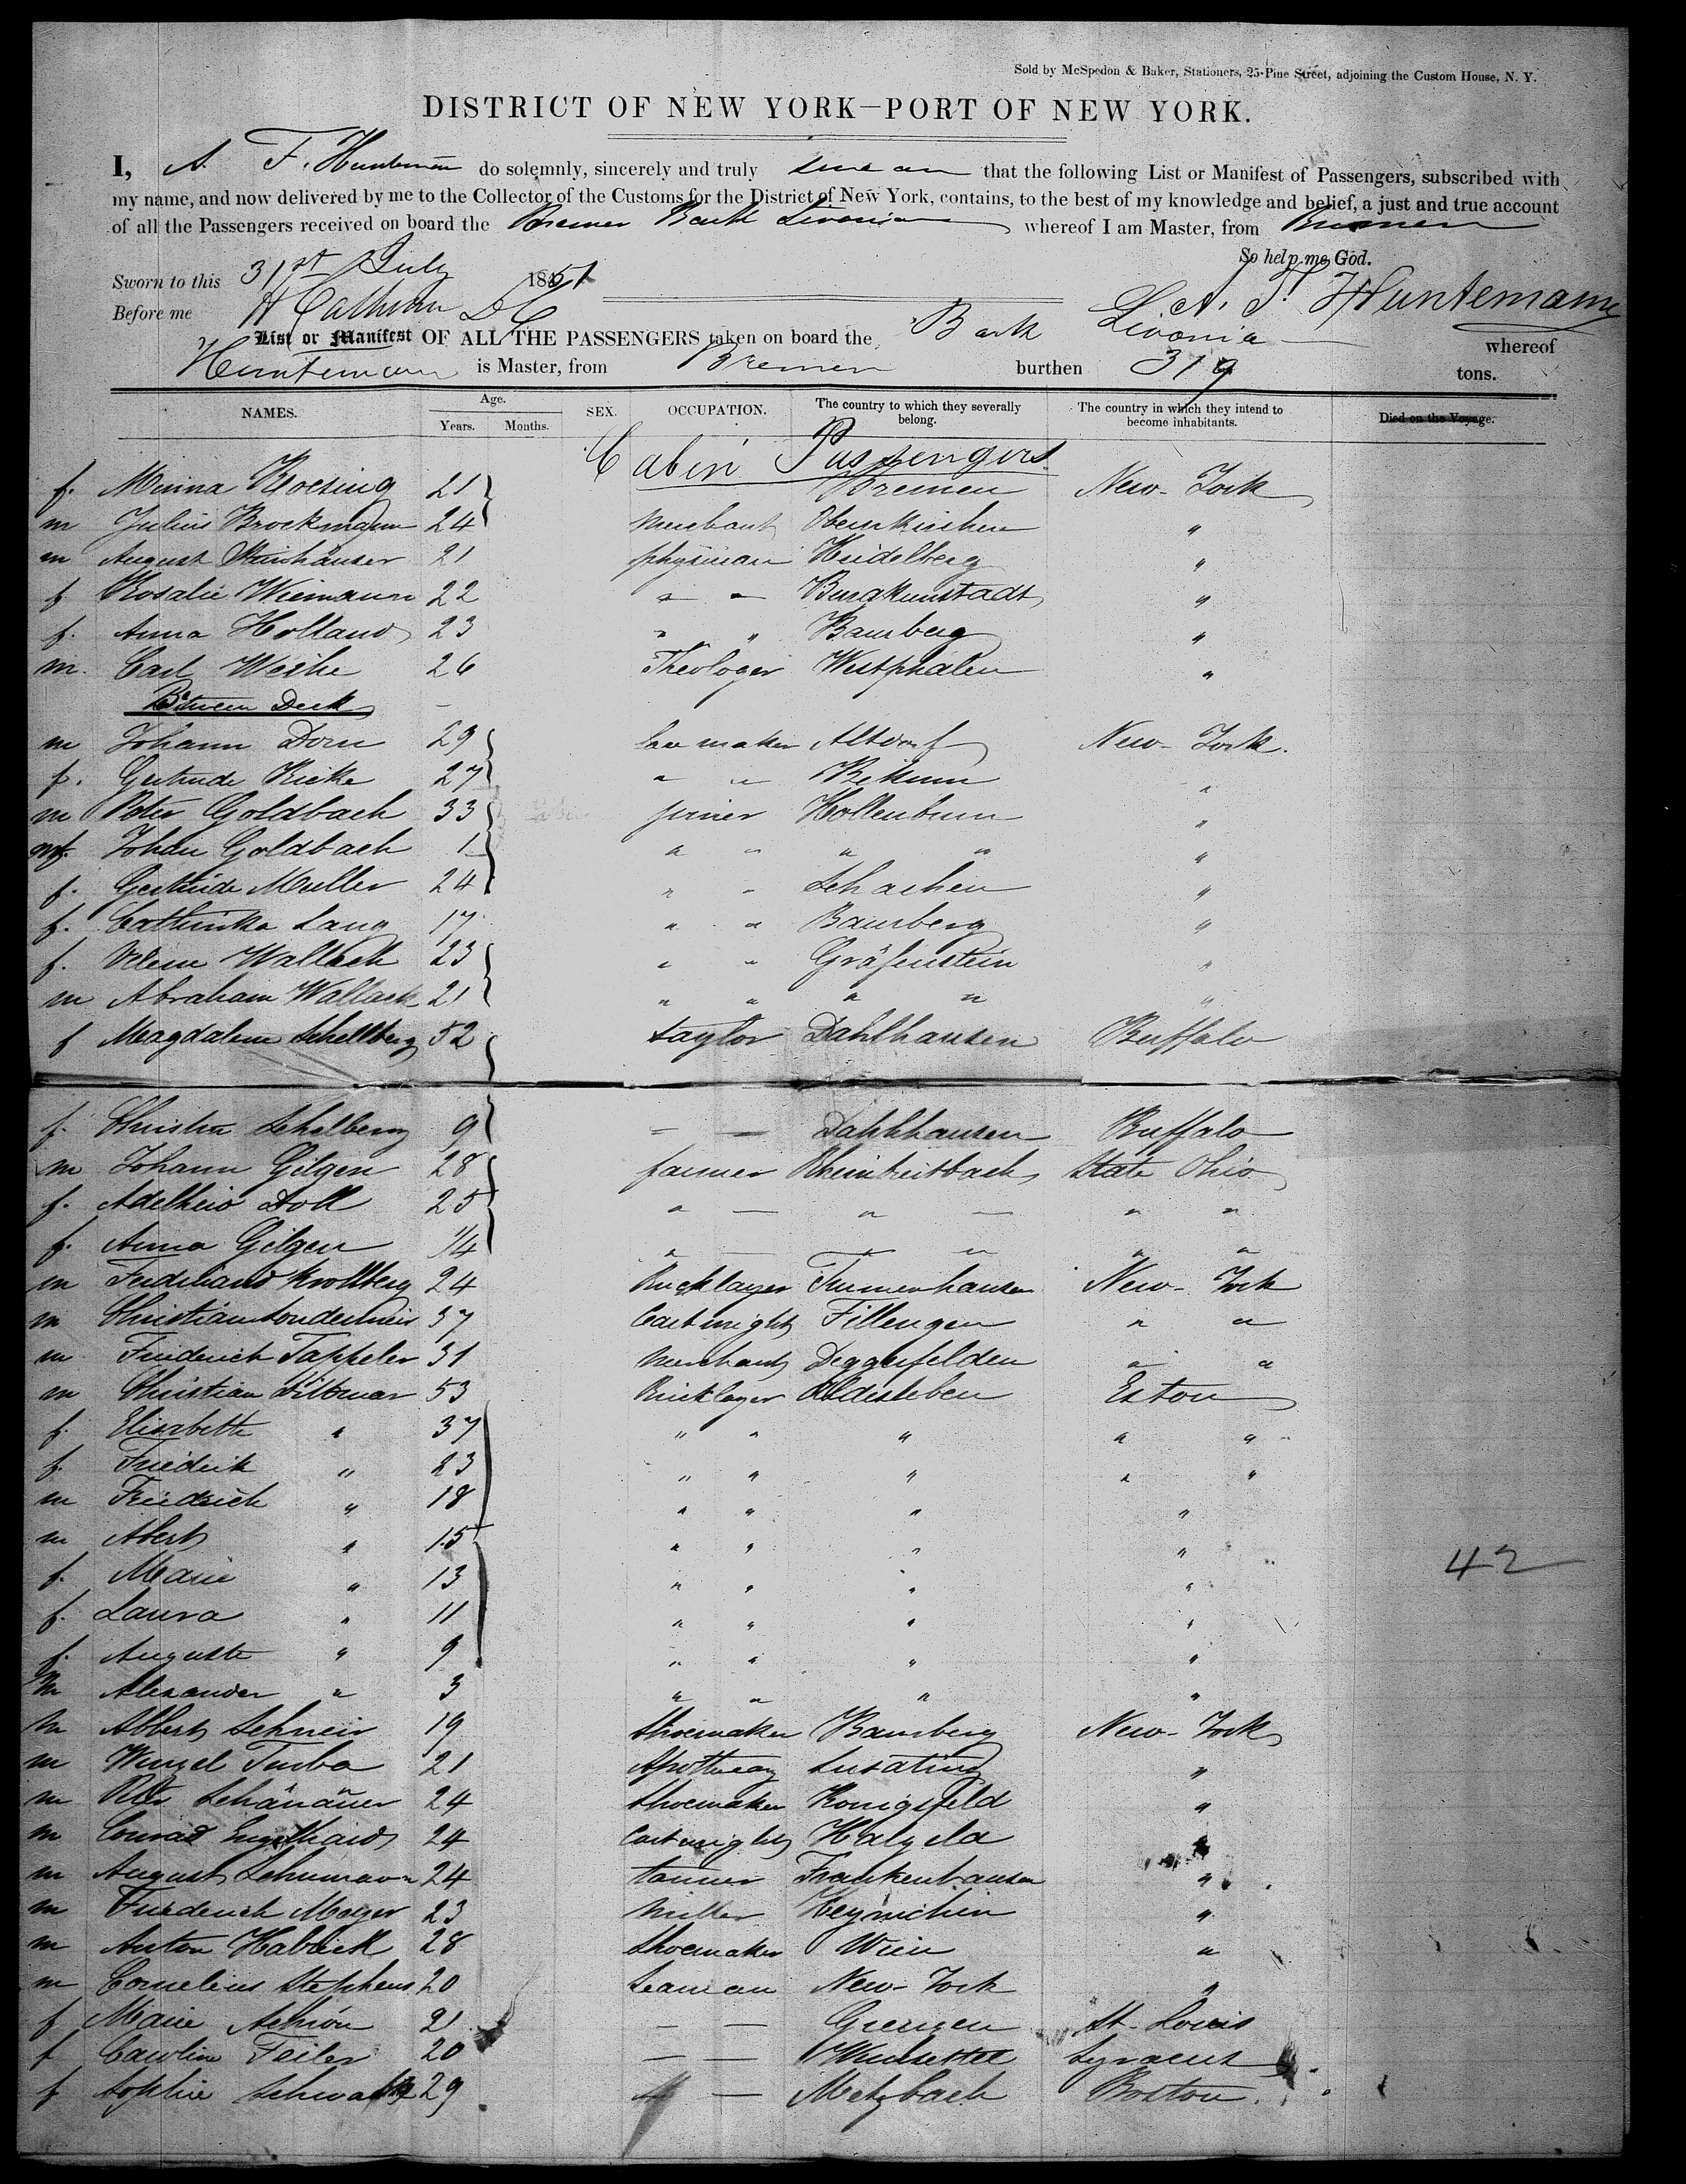 Sold by McSpedon & Baker, Stationers, 25 Pine Street, adjoining the Custom House, N. Y.
DISTRICT OF NEW YORK—PORT OF NEW YORK.
I, A. F. Huntemann do solemnly, sincerely and truly swear that the following List or Manifest of Passengers, subscribed with
my name, and now delivered by me to the Collector of the Customs for the District of New York, contains, to the best of my knowledge and belief, a just and true account
of all the Passengers received on board the Bremer Bark Livonia whereof I am Master, from Bremen
So help me God.
Sworn to this 31st July 1851
A. F. Huntemann
Before me H Calhoun D C
List or Manifest OF ALL THE PASSENGERS taken on board the Bark Livonia whereof
Huntemann is Master, from Bremen burthen 319 tons.
NAMES. Age. Years. Months. SEX. OCCUPATION. The country to which they severally belong. The country in which they intend to become inhabitants. Died on the Voyage.
Cabin Passengers
f. Minna Hoesing 21 Bremen New-York
m Julius Brockmann 24 merchant Obernkirchen "
m August Steinhäuser 21 physician Heidelberg "
f Rosalie Wiemann 22 " " Burgkunstadt "
f. Anna Holland 23 " " Bamberg "
m. Carl Weihe 26 Theologer Westphalen "
Between Deck
m Johann Dorn 29 maker Altdorf New-York.
f. Gertrude Ricke 27 " " "
m Peter Goldbach 33 joiner "
m Johan Goldbach 1 " " " " "
f. Gertrude Muller 24 " " Schachen "
f. Cathinka Lang 17 " " Bamberg "
f. Wallach 23 " " Gräfenstein "
m Abraham Wallach 21 " " " " "
f Magdalene Schellberg 52 taylor Dahlhausen Buffalo
f. Christin Schelberg 9 — — Dahlhausen Buffalo
m Johann Gilgen 28 farmer Rheinbreitbach State Ohio
f. Adelheid Doll 25 " — " — " "
f. Anna Gilgen 14 " — — " " "
m Ferdinand Krollberg 24 Bricklayer New-York
m Christian 37 Cartwright Fillengen " "
m Friederich Tappeler 31 Merchant Deggenfelden " "
m Christian Dittmar 53 Bricklayer Oldisleben Eston
f. Elisabeth " 37 " " " " "
f. Friedrik " 23 " " " " "
m Friedrich " 18 " " " "
m Albert " 15 " " " "
42
f. Marie " 13 " " " "
f. Laura " 11 " " " "
f. Auguste " 9 " " " "
m Alexander " 3 " " " "
m Albert Schneir 19 Shoemaker Bamberg New-York
m Wenzel Turba 21 Apothecary "
m Peter Schänäuer 24 Shoemaker Konigsfeld "
m Conrad Engelhard 24 Cartwright "
m August Schumann 24 tanner Frankenhausen "
m Friederich Meyer 23 Miller Heynichen "
m Anton Habick 28 Shoemaker Wien "
m Cornelius Stephens 20 Seaman New-York "
f Marie Schrön 21 — — Greugen St. Louis
f Carolin Feiler 20 — — Syracus
f Sophie 29 — Metzbach Boston.